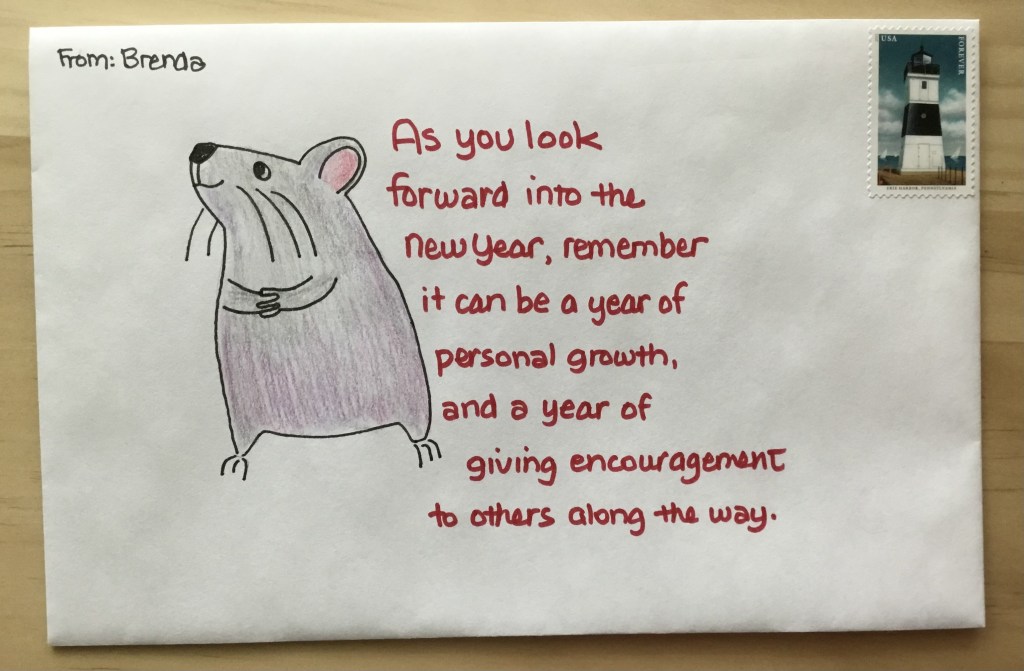 From: Brenda
USA
FOREVER
As you look
forward into the
New Year, remember
it can be a year of
personal growth,
and a year of
giving encouragement
to others along the way.
ERIE HARBOR, PENNSYLVANIA